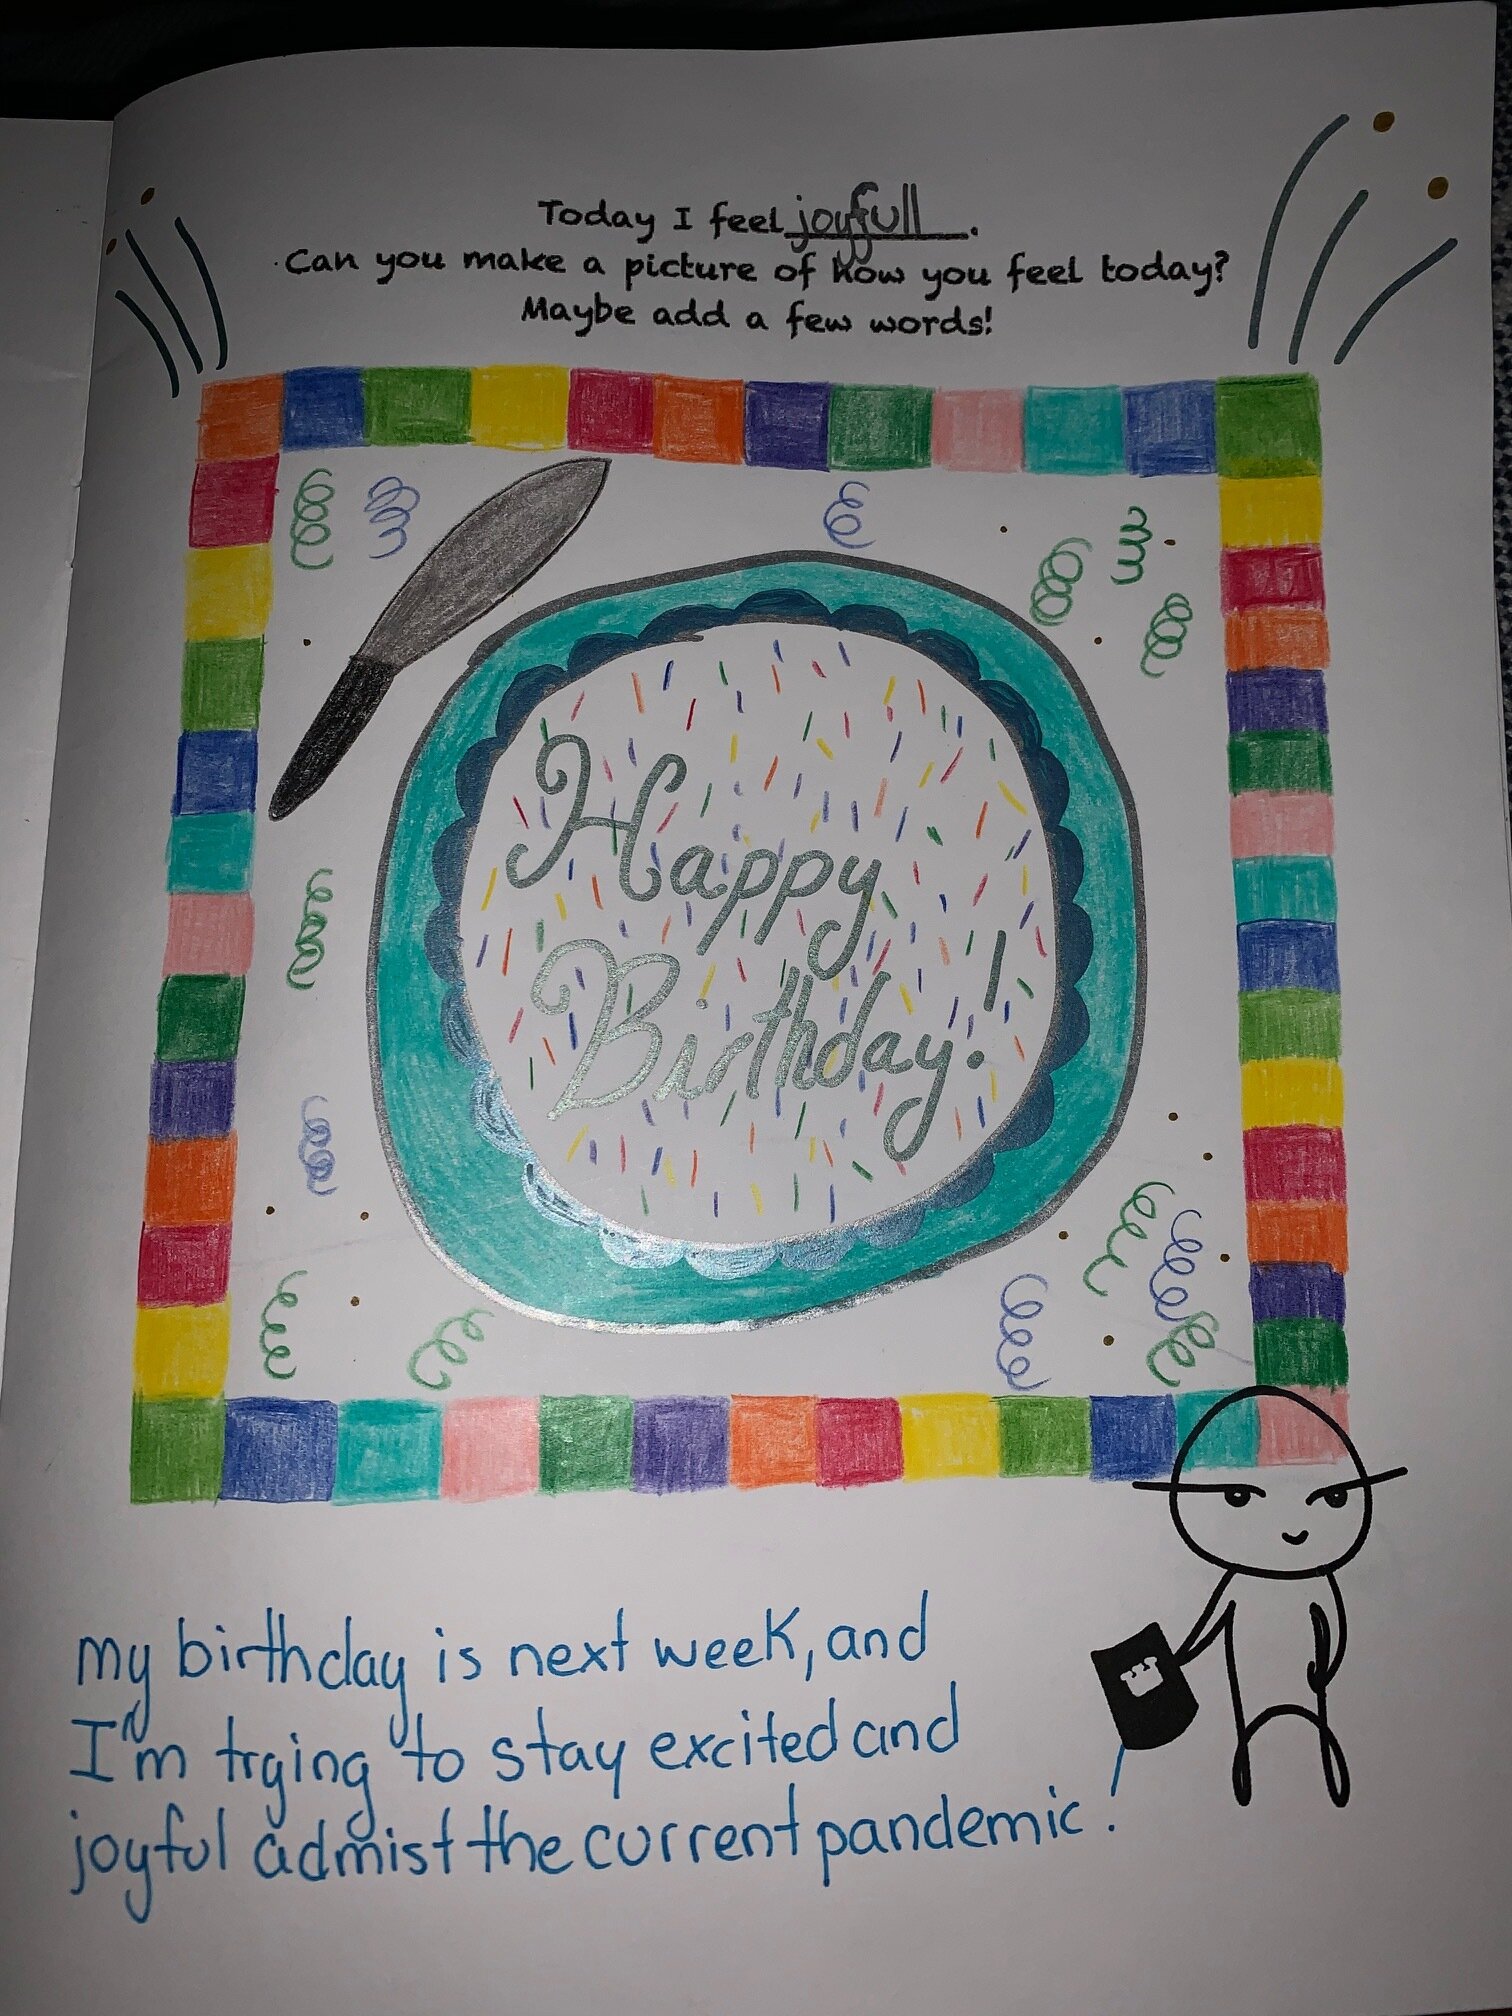 Today I feel joyfull.
Can you make a picture of how you feel today?
Maybe add a few words!
Happy
Birthday!
my birthday is next week, and
I'm trying to stay excited and
joyful admist the current pandemic!